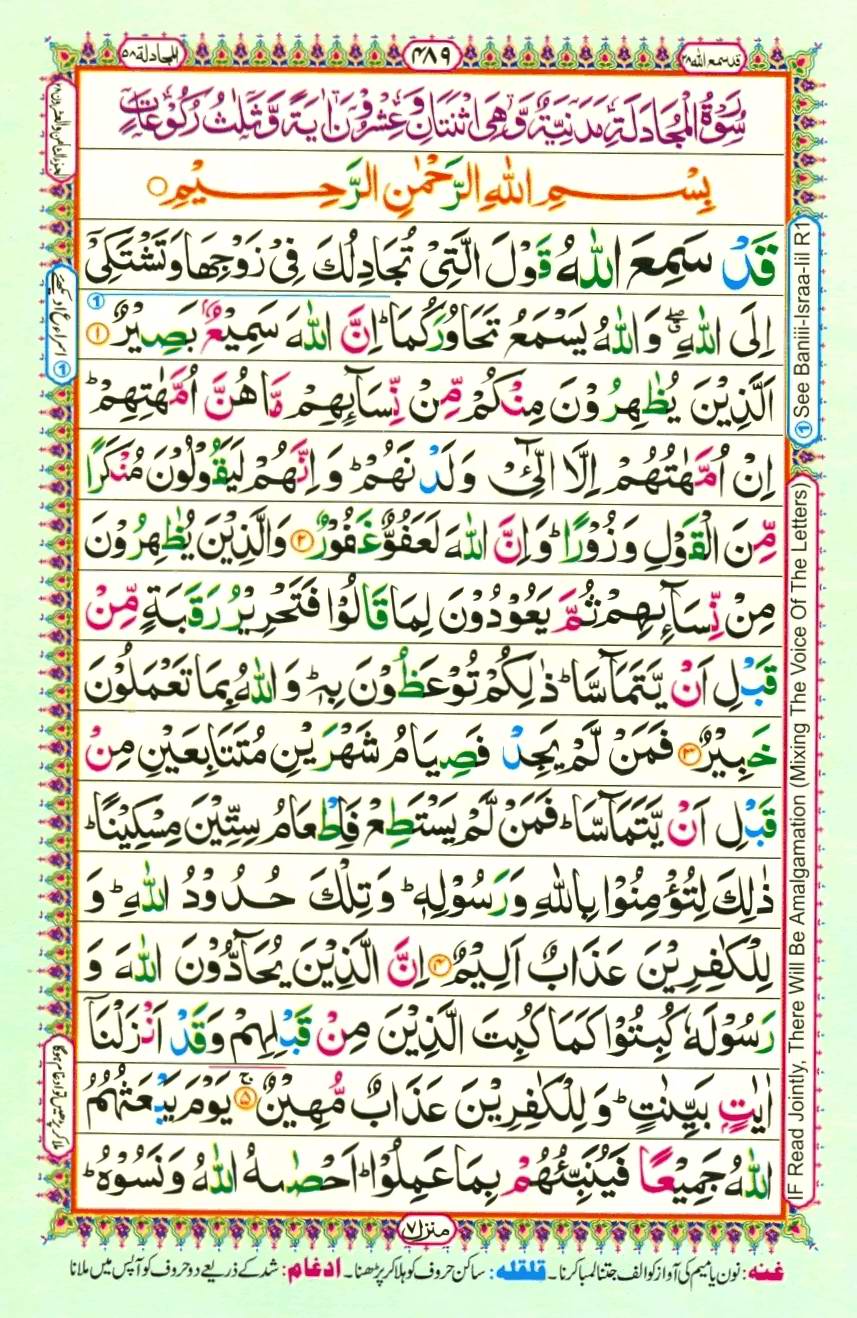 قدسمع الله ۲۸
۴۸۹
المجادلة ۵۸
سُوۡرَةُ الۡمُجَادَلَةِ مَدَنِيَّةٌ وَّهِىَ اثۡنَتَانِ وَعِشۡرُوۡنَ اٰيَةً وَّثَلٰثُ رُكُوۡعَاتٍ
بِسۡمِ اللهِ الرَّحۡمٰنِ الرَّحِيۡمِ
قَدۡ سَمِعَ اللّٰهُ قَوۡلَ الَّتِىۡ تُجَادِلُكَ فِىۡ زَوۡجِهَا وَتَشۡتَكِىۡۤ
اِلَى اللّٰهِ ۖ وَاللّٰهُ يَسۡمَعُ تَحَاوُرَكُمَا ؕ اِنَّ اللّٰهَ سَمِيۡعٌۢ بَصِيۡرٌ ۱
اَلَّذِيۡنَ يُظٰهِرُوۡنَ مِنۡكُمۡ مِّنۡ نِّسَآٮِٕهِمۡ مَّا هُنَّ اُمَّهٰتِهِمۡ ؕ
اِنۡ اُمَّهٰتُهُمۡ اِلَّا الّٰٓـىِٔۡ وَلَدۡنَهُمۡ ؕ وَاِنَّهُمۡ لَيَقُوۡلُوۡنَ مُنۡكَرًا
مِّنَ الۡقَوۡلِ وَزُوۡرًا ؕ وَاِنَّ اللّٰهَ لَعَفُوٌّ غَفُوۡرٌ ۲ وَالَّذِيۡنَ يُظٰهِرُوۡنَ
مِنۡ نِّسَآٮِٕهِمۡ ثُمَّ يَعُوۡدُوۡنَ لِمَا قَالُوۡا فَتَحۡرِيۡرُ رَقَبَةٍ مِّنۡ
قَبۡلِ اَنۡ يَّتَمَآسَّا ؕ ذٰلِكُمۡ تُوۡعَظُوۡنَ بِهٖ ؕ وَاللّٰهُ بِمَا تَعۡمَلُوۡنَ
خَبِيۡرٌ ۳ فَمَنۡ لَّمۡ يَجِدۡ فَصِيَامُ شَهۡرَيۡنِ مُتَتَابِعَيۡنِ مِنۡ
قَبۡلِ اَنۡ يَّتَمَآسَّا ؕ فَمَنۡ لَّمۡ يَسۡتَطِعۡ فَاِطۡعَامُ سِتِّيۡنَ مِسۡكِيۡنًا ؕ
ذٰلِكَ لِتُؤۡمِنُوۡا بِاللّٰهِ وَرَسُوۡلِهٖ ؕ وَتِلۡكَ حُدُوۡدُ اللّٰهِ ؕ وَ
لِلۡكٰفِرِيۡنَ عَذَابٌ اَلِيۡمٌ ۴ اِنَّ الَّذِيۡنَ يُحَآدُّوۡنَ اللّٰهَ وَ
رَسُوۡلَهٗ كُبِتُوۡا كَمَا كُبِتَ الَّذِيۡنَ مِنۡ قَبۡلِهِمۡ وَقَدۡ اَنۡزَلۡنَاۤ
اٰيٰتٍۢ بَيِّنٰتٍ ؕ وَلِلۡكٰفِرِيۡنَ عَذَابٌ مُّهِيۡنٌ ۚ ۵ يَوۡمَ يَبۡعَثُهُمُ
اللّٰهُ جَمِيۡعًا فَيُنَبِّئُهُمۡ بِمَا عَمِلُوۡا ؕ اَحۡصٰٮهُ اللّٰهُ وَنَسُوۡهُ ؕ
① See Baniii-Israa-Iil R1
IF Read Jointly, There Will Be Amalgamation (Mixing The Voice Of The Letters)
ملا کر پڑھیں تو ادغام ہوگا
منزل ۷
غنه: نون یا میم کی آواز کو الف جتنا لمبا کرنا۔ قلقله: ساکن حروف کو ہلا کر پڑھنا۔ ادغام: شد کے ذریعے دو حروف کو آپس میں ملانا